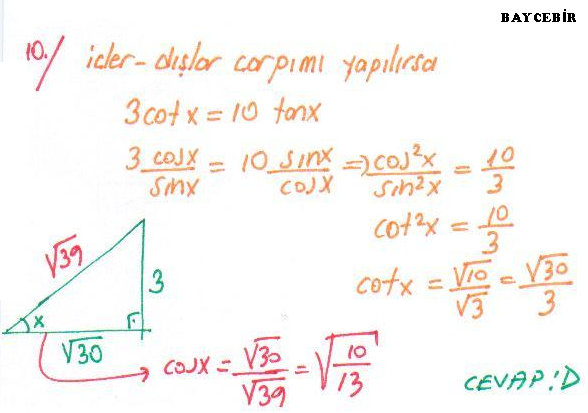 BAYCEBİR
10./ içler-dışlar çarpımı yapılırsa
3cotx = 10 tanx
3 cosx/sinx = 10 sinx/cosx ⇒ cos²x/sin²x = 10/3
cot²x = 10/3
cotx = √10/√3 = √30/3
√39
3
x
√30
cosx = √30/√39 = √(10/13)
CEVAP:D